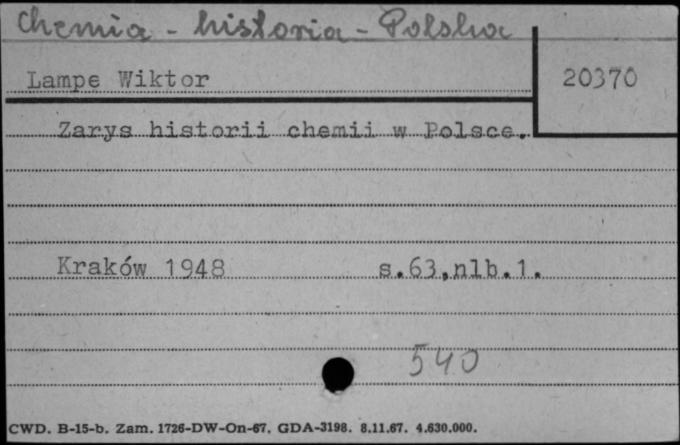 Chemia - historia - Polska
Lampe Wiktor
20370
Zarys historii chemii w Polsce.
Kraków 1948 s.63,nlb.1.
540
CWD. B-15-b. Zam. 1726-DW-On-67. GDA-3198. 8.11.67. 4.630.000.